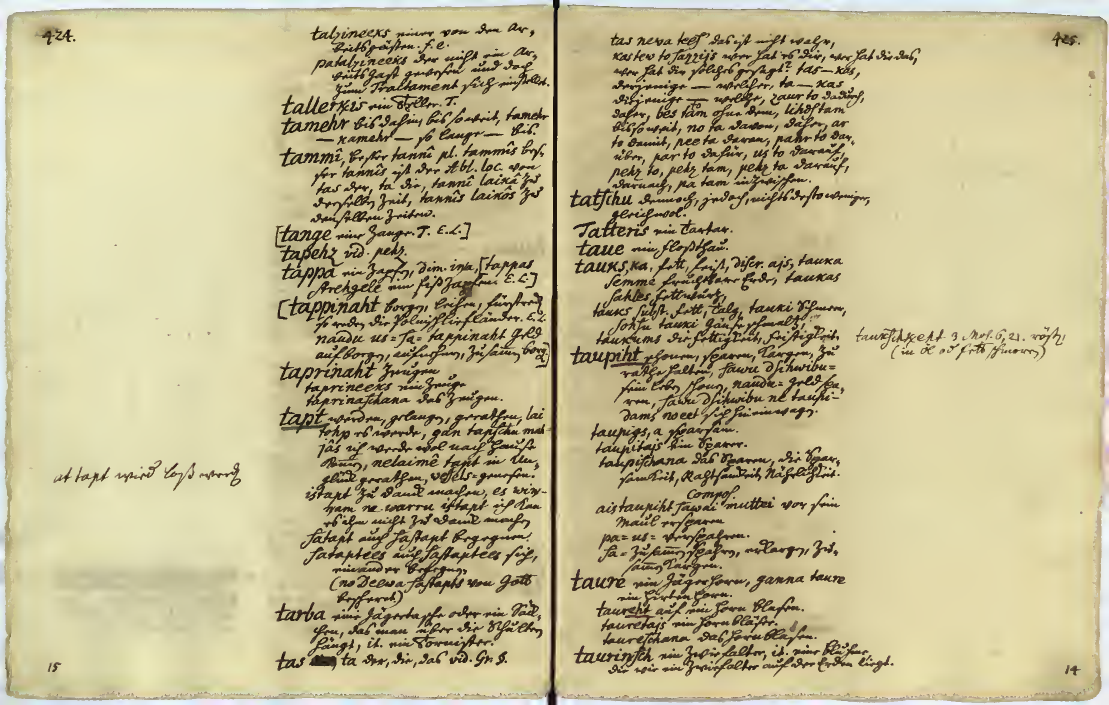 424.
talzineeks einer von den Ar,
beitsgästen. f. e.
patalzineeks der nicht ein Ar,
beits Gast gewesen und doch
zum Tractament sich einstellet.
tallerkis ein Teller. T.
tamehr bis dahin, bis so weit, tamehr
— kamehr — so lange — bis.
tammî, besser tannî pl. tammîs bes,
ser tannîs ist der Abl. loc. von
tas der, ta die, tannî laikâ zu
derselben Zeit, tannîs laikôs zu
denselben Zeiten.
[tange eine Zange. T. E. L.]
tapehz vid. pehz.
tappa ein Zapfen, dim. ina, [tappas
E. L.]
[tappinaht borgen, leihen,
so reden die Polnischliefländer. E. L.
naudu us= sa= tappinaht Geld
auf borgen, aufnehmen, zusamm borg]
taprinaht zeugen
taprineeks ein Zeuge
taprinaschana das Zeugen.
tapt werden, gelangen, gerathen, lai
tohp es werde, gan tapschu mah
jâs ich werde wol nach Hause
kommen, nelaimê tapt in Un,
glück gerathen, wesels= genesen.
istapt zu dank machen, es win=
nam ne warru istapt ich kan
es ihm nicht zu dank machen
satapt auch sastapt begegnen.
sataptees auch sastaptees sich,
einander begegnen,
(no Deewa sastapts von Gott
bescheret)
at tapt wied loß werd
tarba eine Jägertasche oder ein Säck,
chen, das man über die Schulter
hängt, it. ein Tornister.
tas ta der, die, das vid. Gr. §.
15
425.
tas newa tees das ist nicht wahr,
kas tew to sazzijs wer hat es dir, wer hat dir das,
wer hat dir solches gesagt? tas — kas,
derjenige — welcher, ta — kas
diejenige — welche, zaur to dadurch,
daher, bes tam ohne dem, lihds tam
bis so weit, no ta davon, daher, ar
to damit, pee ta daran, pahr to dar,
über, par to dafür, us to darauf,
pehz to, pehz tam, pehz ta darauf,
darnach, pa tam inzwischen.
tatschu dennoch, jedoch, nichts desto weniger,
gleichwol.
Tatteris ein Tartar.
taue ein Floßthau.
tauks, ka, fett, feist, discr. ajs, tauka
semme fruchtbare Erde, taukas
sahles fettwurtz,
tauks subst. fett, Talg, tauki Schmeer,
sohsu tauki Gänseschmaltz,
taukums die Fettigkeit, Feistigkeit.
taukschkeht 3. Mos. 6, 21. rösten
(in öl od fett schmoren)
taupiht schonen, sparen, kargen, zu
rathe halten, sawu dsihwibu=
sein Leben schonen, naudu= Geld spa,
ren, sawu dsihwibu ne taupi=
dams weet sich hinein wagen.
taupigs, a sparsam.
taupitajs ein Sparer.
taupischana das Sparen, die Spar,
samkeit, Rahtsamkeit, Nährlichkeit.
Compos.
aistaupiht sawai muttei vor sein
Maul ersparen
pa= us= versparen.
sa= zusamm sparen, erkargen, zu,
samm kargen.
taure ein Jägerhorn, ganna taure
ein Hirten horn.
taureht auf ein Horn blasen.
tauretajs ein Hornbläser.
taureschana das Horn blasen.
taurinsch ein Zwiefalter, it. eine Blume,
die wie ein Zwiefalter auf der Erden liegt.
14